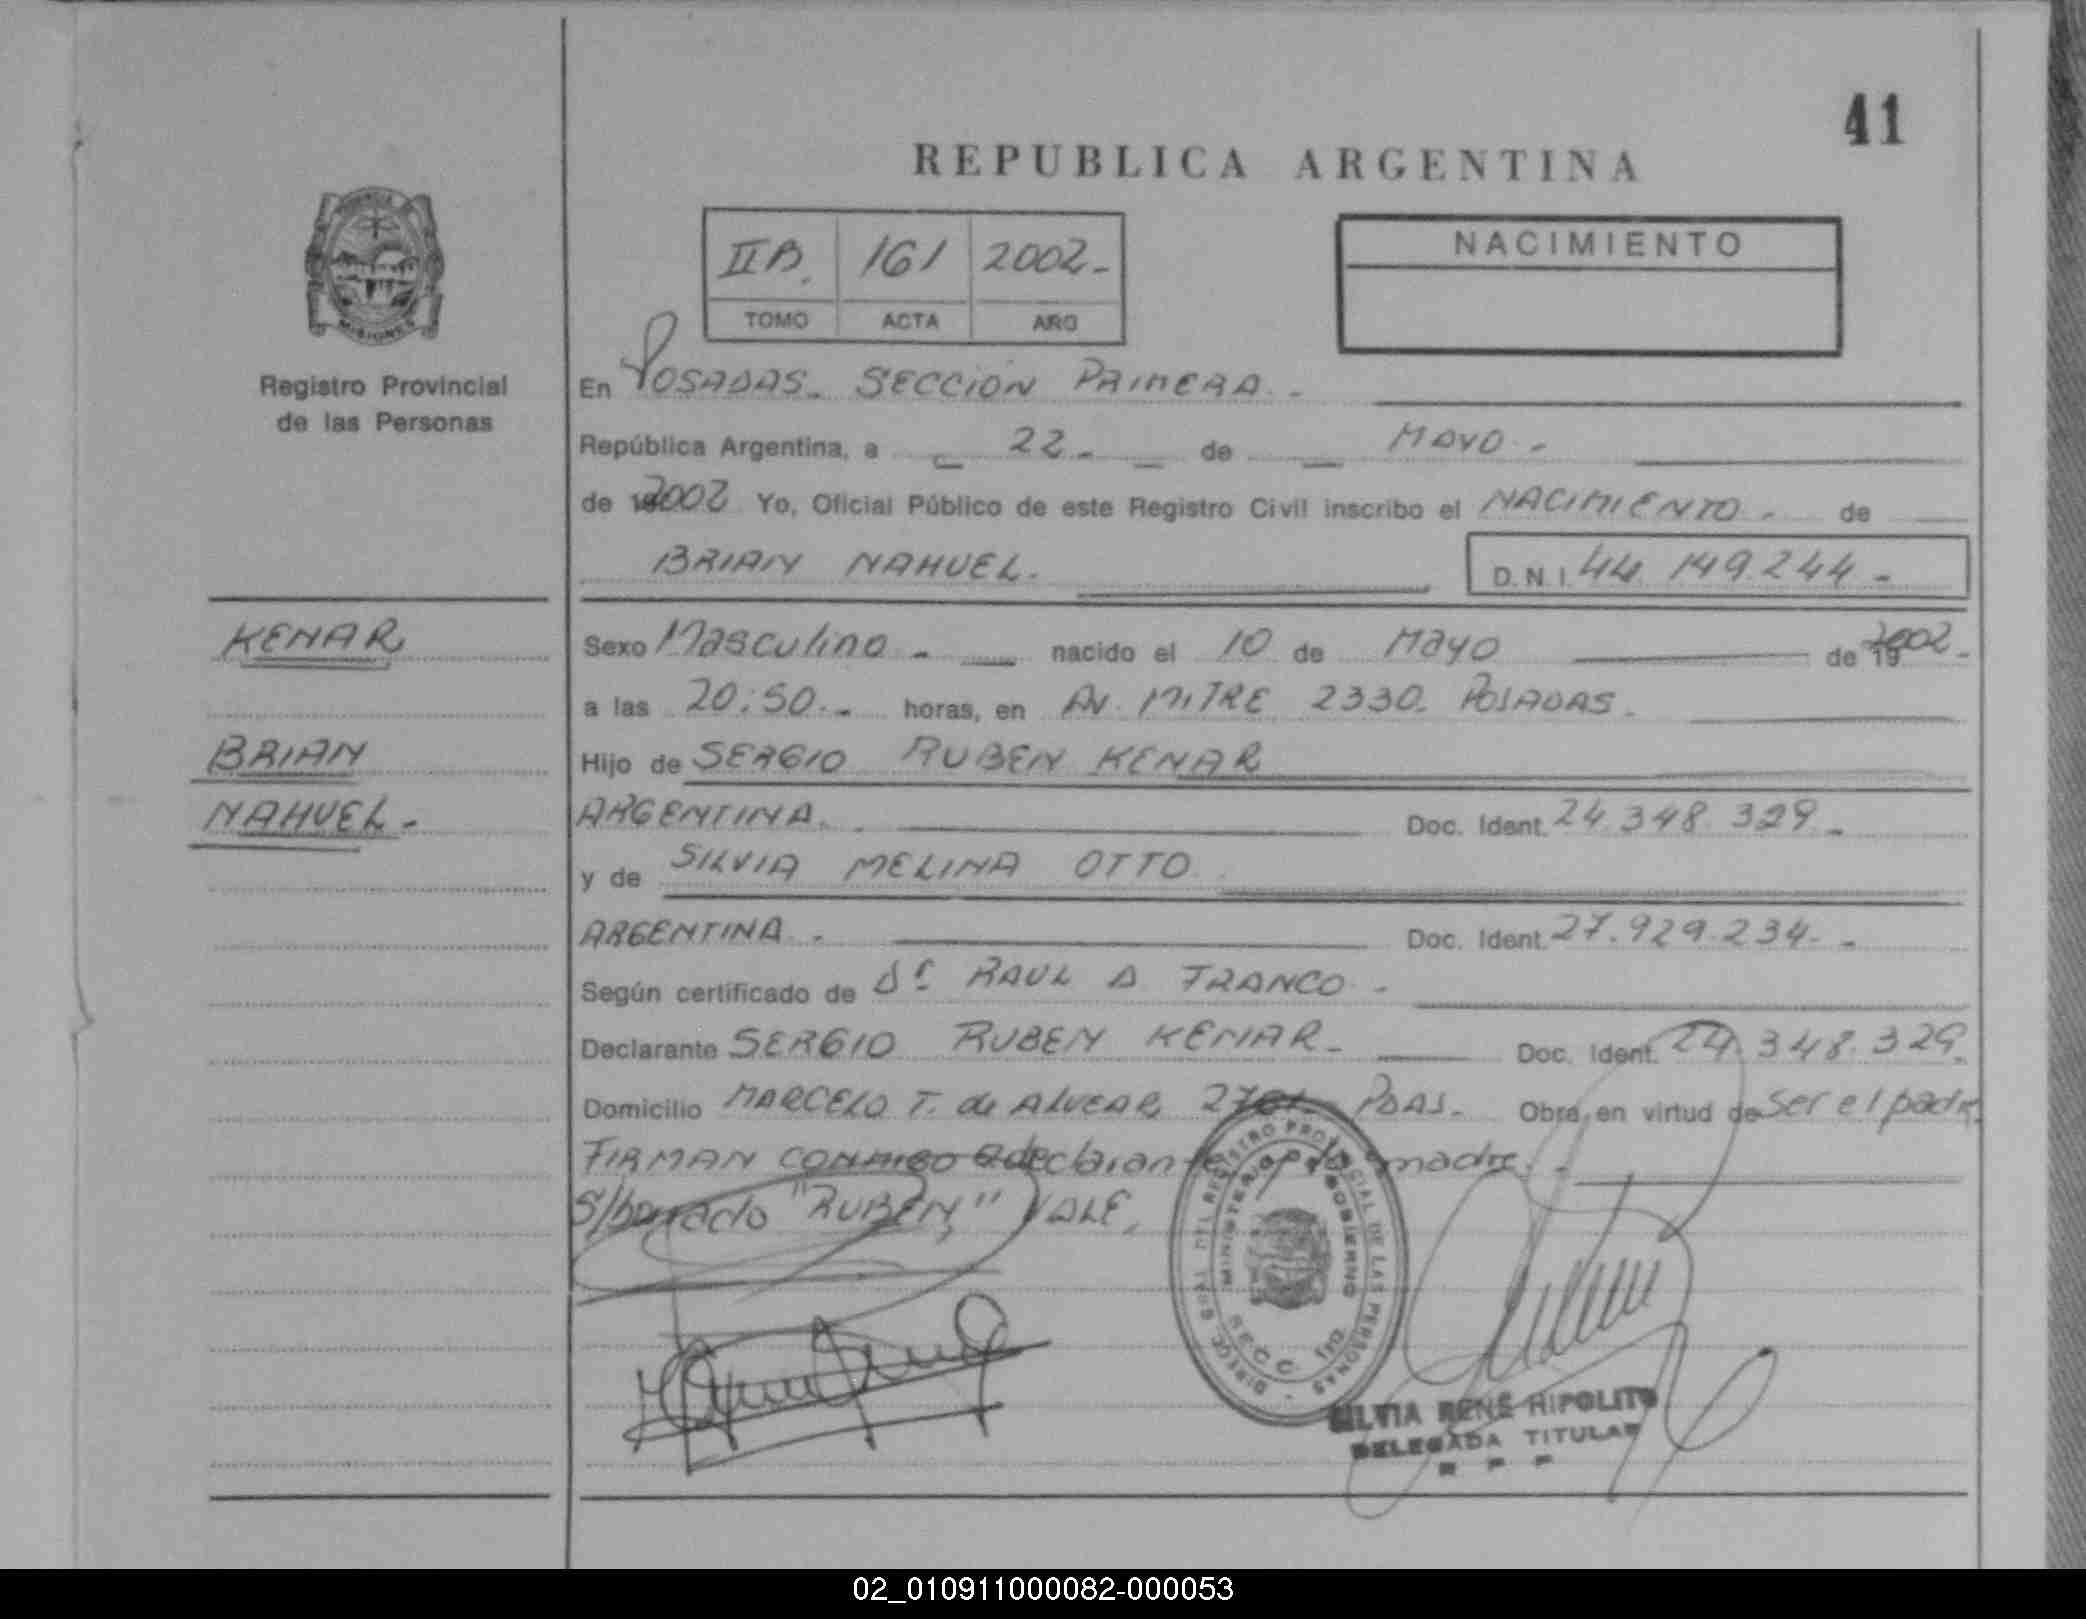 41
REPUBLICA ARGENTINA
IIB. 161 2002-
TOMO ACTA AÑO
NACIMIENTO
MISIONES
Registro Provincial
de las Personas
En POSADAS- SECCION PRIMERA.-
República Argentina, a - 22 - - de - MAYO -
de 2002 Yo, Oficial Público de este Registro Civil inscribo el NACIMIENTO - de
BRIAN NAHUEL. D.N.I. 44.149.244-
KENAR
BRIAN
NAHUEL-
Sexo Masculino - nacido el 10 de Mayo de 2002-
a las 20:50.- horas, en AV. MITRE 2330. POSADAS.
Hijo de SERGIO RUBEN KENAR
ARGENTINA. Doc. Ident. 24.348.329-
y de SILVIA MELINA OTTO
ARGENTINA. Doc. Ident. 27.929.234.-
Según certificado de Dr RAUL A FRANCO -
Declarante SERGIO RUBEN KENAR- Doc. Ident. 24.348.329.
Domicilio MARCELO T. de ALVEAR PDAS. Obra en virtud de ser el padre
FIRMAN CONMIGO declarante y la madre.-
S/borrado "RUBEN," VALE.
DIREC. GRAL. DEL REGISTRO PROVINCIAL DE LAS PERSONAS
MINISTERIO DE GOBIERNO
SECC.
SILVIA RENÉ HIPOLITO
DELEGADA TITULAR
02_010911000082-000053